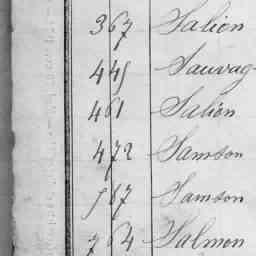 367 Salien
445 Sauvag
461 Salien
472 Samson
567 Samson
764 Salmon